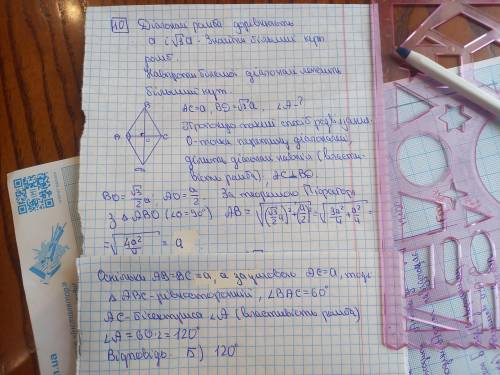 10 Діагоналі ромба дорівнюють
a і √3a. Знайти більший кут
ромба.
Навпроти більшої діагоналі лежить
більший кут.
AC=a, BD=√3a, ∠A-?
Пропоную такий спосіб розв'язання.
O-точка перетину діагоналей,
ділить діагоналі навпіл (власти-
вість ромба). AC⊥BD.
B
A O C
BO=√3/2 a, AO=a/2. За теоремою Піфагора
з △ABO (∠O=90°) AB=√((√3/2 a)²+(a/2)²)=√(3a²/4+a²/4)=
=√(4a²/4)=a
Оскільки AB=BC=a, а за умовою AC=a, тоді
△ABC-рівносторонній, ∠BAC=60°
AC-бісектриса ∠A (властивість ромба)
∠A=60·2=120°
Відповідь Б) 120°